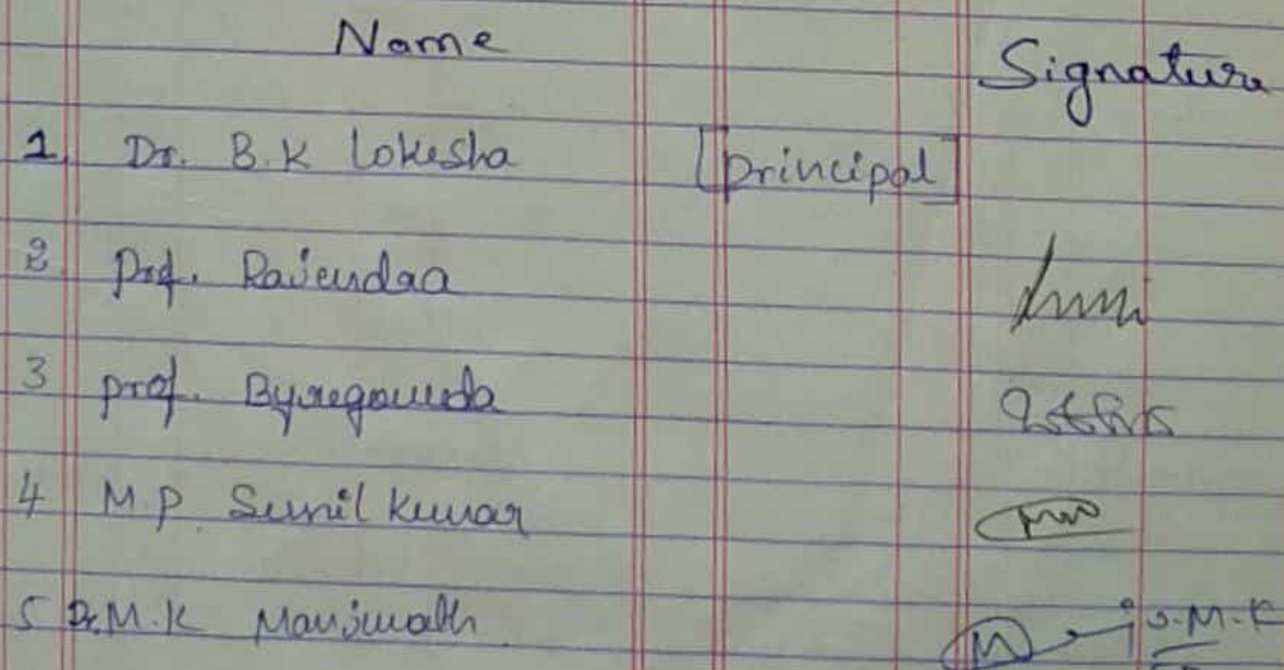 Name Signature
1 Dr. B.K Lokesha [principal]
2 Prof. Rajendra
3 prof. Byregowda
4 M.P. Sunil Kumar
5 Dr. M.K Manjunath